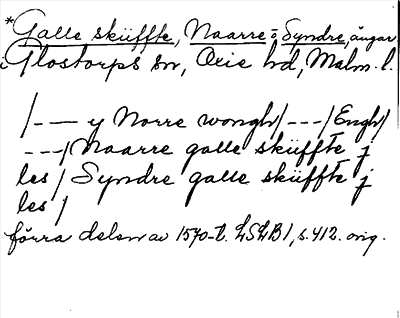 *Galle skiiffte, Naarre o Syndre, ängar
i Glostorps sn, Oxie hd, Malm. l.
/--- y Norre wongh/---/Engh/
---/ Naarre galle skiiffte j
les/ Syndre galle skiiffte j
les/
förra delen av 1570-t. LSLB1, s. 412. orig.